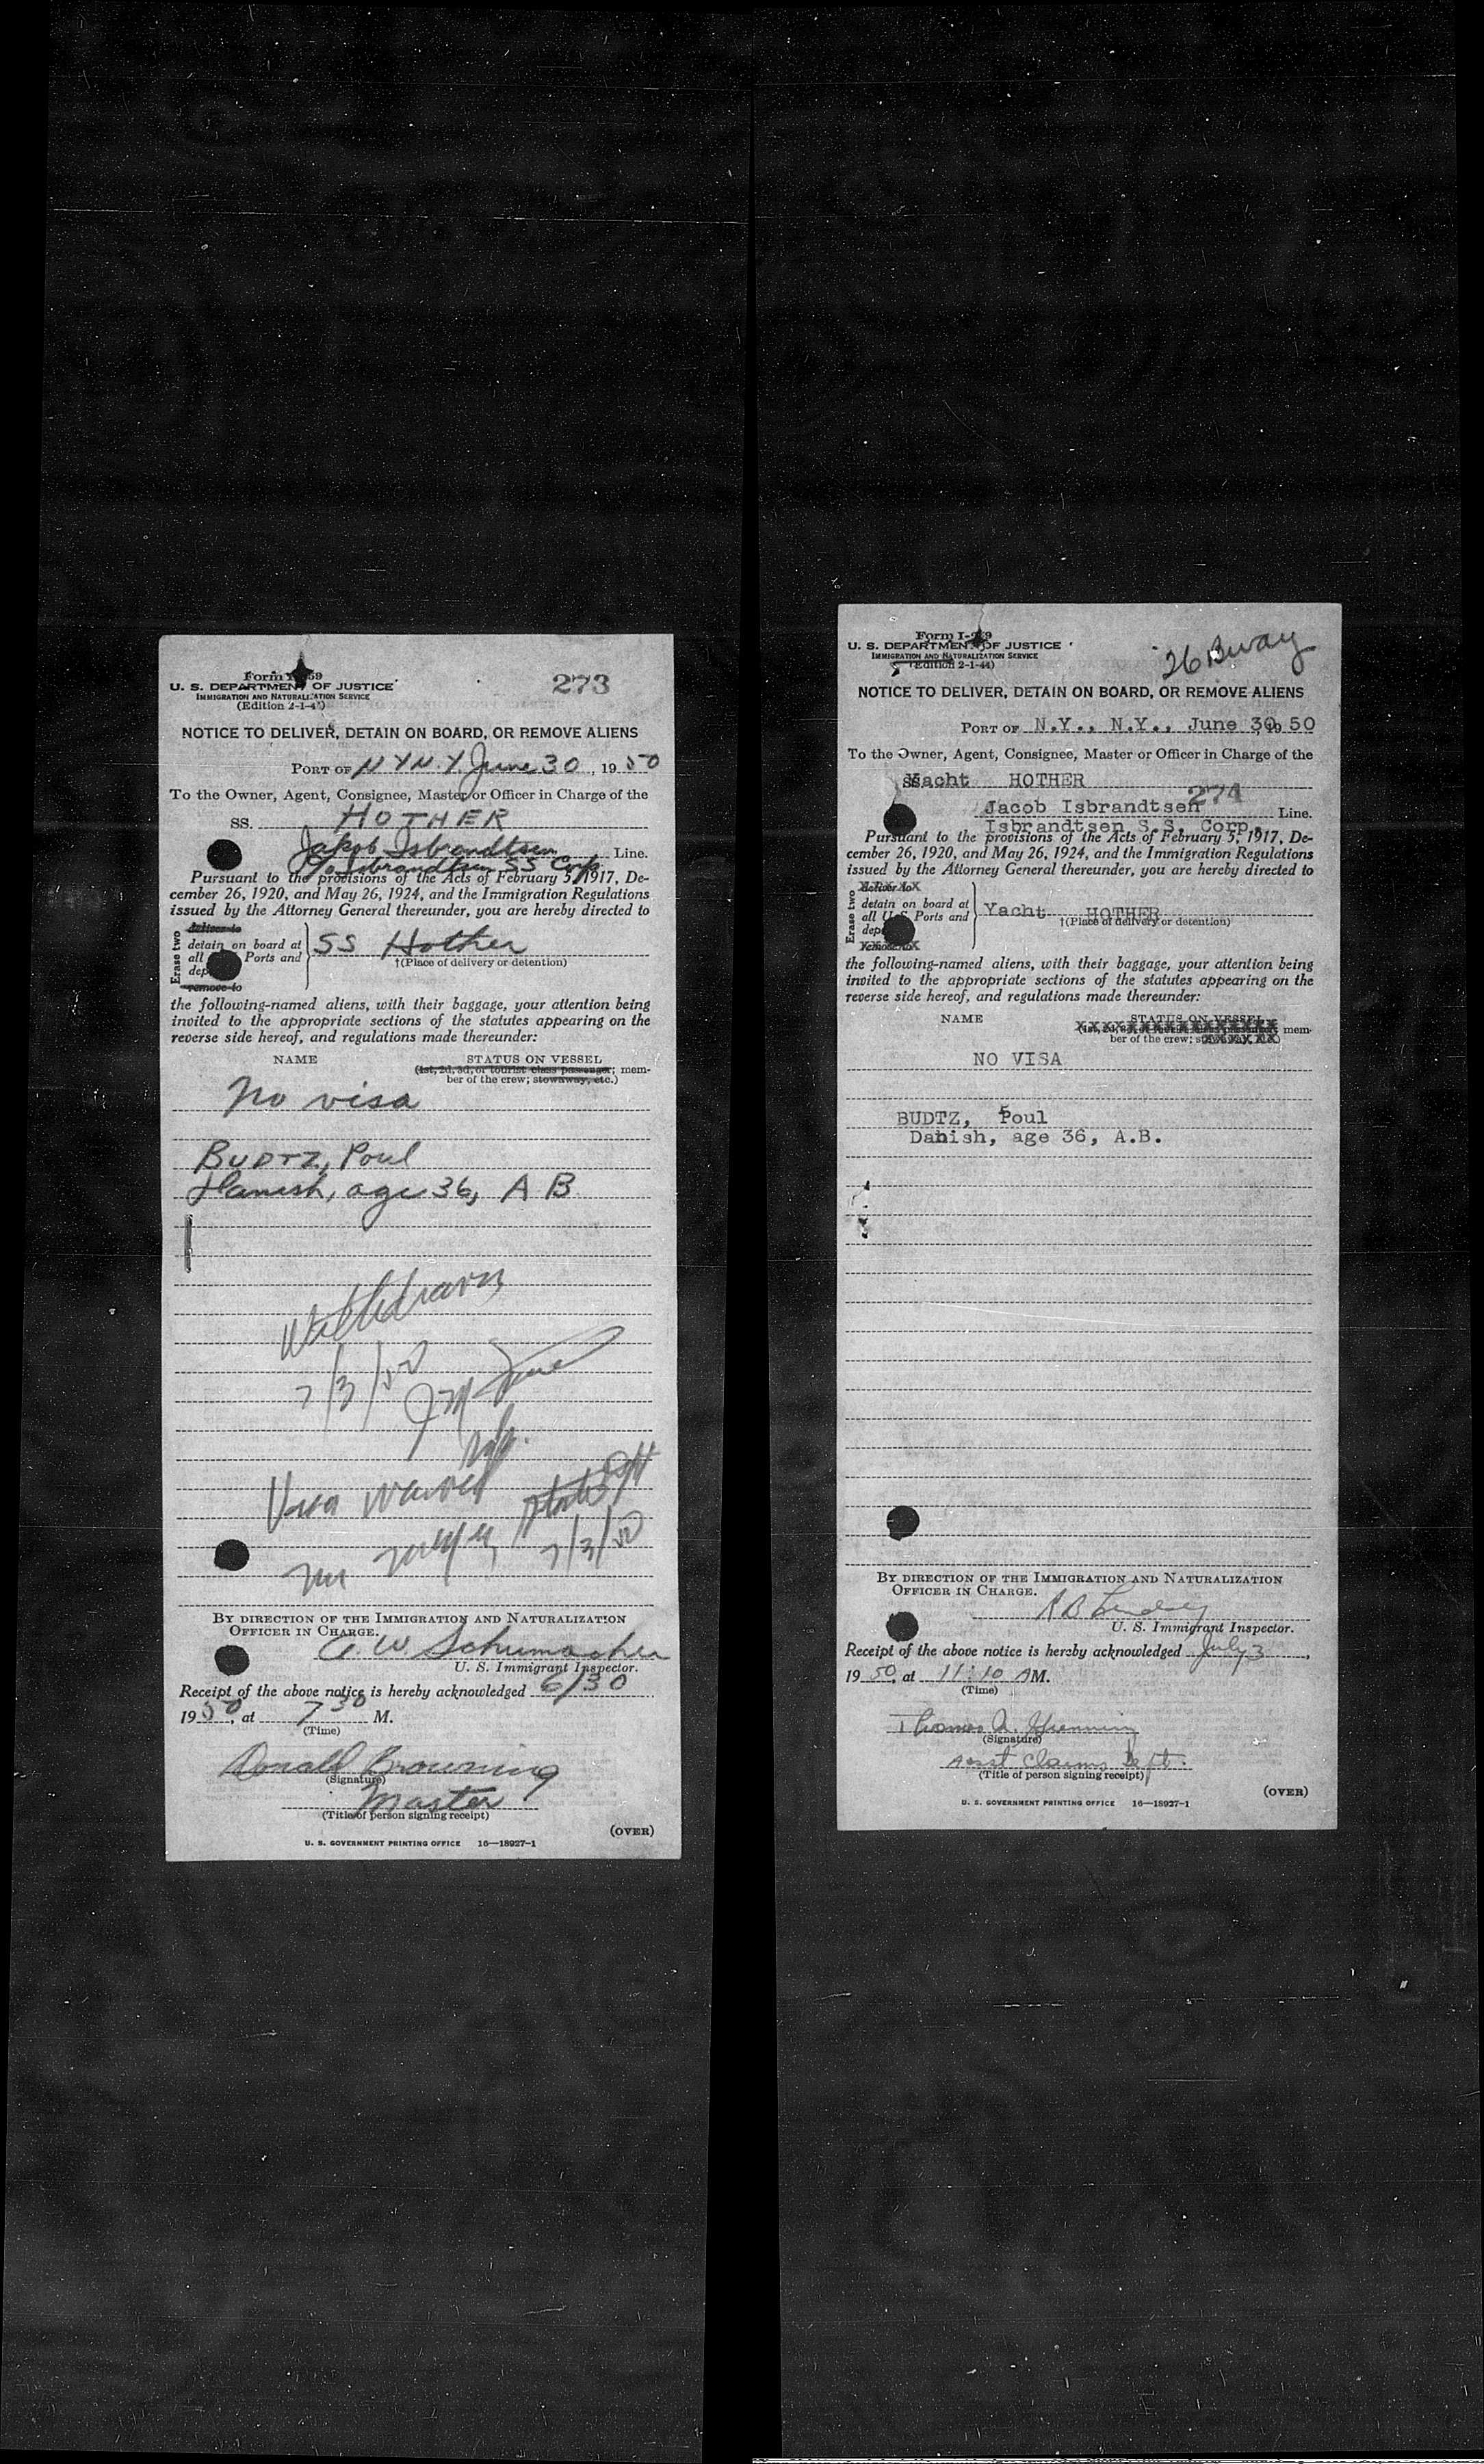 Form I-259
U. S. DEPARTMENT OF JUSTICE
IMMIGRATION AND NATURALIZATION SERVICE
(Edition 2-1-4)
273
NOTICE TO DELIVER, DETAIN ON BOARD, OR REMOVE ALIENS
PORT OF N Y N.Y. June 30, 1950
To the Owner, Agent, Consignee, Master or Officer in Charge of the
SS. HOTHER
Jakob Isbrandtsen Line.
c/o Isbrandtsen SS Corp
Pursuant to the provisions of the Acts of February 5, 1917, De-
cember 26, 1920, and May 26, 1924, and the Immigration Regulations
issued by the Attorney General thereunder, you are hereby directed to
Erase two
deliver to
detain on board at
all Ports and
dep
remove to
SS Hother
†(Place of delivery or detention)
the following-named aliens, with their baggage, your attention being
invited to the appropriate sections of the statutes appearing on the
reverse side hereof, and regulations made thereunder:
NAME STATUS ON VESSEL
(1st, 2d, 3d, or tourist class passenger; mem-
ber of the crew; stowaway, etc.)
No visa
BUDTZ, Poul
Danish, age 36, A B
Withdrawn
7/3/50
Visa waived
7/3/50
BY DIRECTION OF THE IMMIGRATION AND NATURALIZATION
OFFICER IN CHARGE.
A. W Schumacher
U. S. Immigrant Inspector.
Receipt of the above notice is hereby acknowledged 6/30
1950, at 7 30 M.
(Time)
Donald Browning
(Signature)
Master
(Title of person signing receipt)
(OVER)
U. S. GOVERNMENT PRINTING OFFICE 16—18927-1
Form I-259
U. S. DEPARTMENT OF JUSTICE
IMMIGRATION AND NATURALIZATION SERVICE
(Edition 2-1-44)
26 Bway
NOTICE TO DELIVER, DETAIN ON BOARD, OR REMOVE ALIENS
PORT OF N.Y., N.Y., June 30 1950
To the Owner, Agent, Consignee, Master or Officer in Charge of the
Yacht HOTHER
274
Jacob Isbrandtsen Line.
Isbrandtsen S.S. Corp.
Pursuant to the provisions of the Acts of February 5, 1917, De-
cember 26, 1920, and May 26, 1924, and the Immigration Regulations
issued by the Attorney General thereunder, you are hereby directed to
Erase two
deliver to
detain on board at
all U.S. Ports and
dep
remove to
Yacht HOTHER
†(Place of delivery or detention)
the following-named aliens, with their baggage, your attention being
invited to the appropriate sections of the statutes appearing on the
reverse side hereof, and regulations made thereunder:
NAME STATUS ON VESSEL
(1st, 2d, 3d, or tourist class passenger; mem-
ber of the crew; stowaway, etc.)
NO VISA
BUDTZ, Poul
Danish, age 36, A.B.
BY DIRECTION OF THE IMMIGRATION AND NATURALIZATION
OFFICER IN CHARGE.
U. S. Immigrant Inspector.
Receipt of the above notice is hereby acknowledged July 3,
1950, at 11:10 AM.
(Time)
Thomas
(Signature)
Asst Claims Dept.
(Title of person signing receipt)
(OVER)
U. S. GOVERNMENT PRINTING OFFICE 16—18927-1